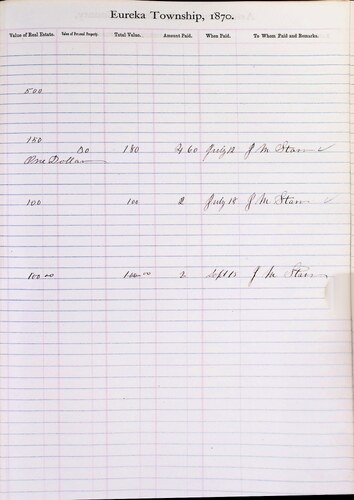 Eureka Township, 1870.
Value of Real Estate. Value of Personal Property Total Value. Amount Paid. When Paid. To Whom Paid and Remarks.
500
150 30 180 2 60 July 18 J M Starr
One Dollar
100 100 2 July 18 J M Starr
100 00 100 00 2 Sept 15 J M Starr